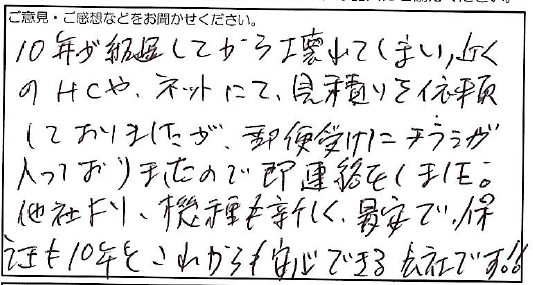 ご意見・ご感想などをお聞かせください。
10年が経過してから壊れてしまい、近く
のHCや、ネットにて、見積りを依頼
しておりましたが、郵便受けにチラシが
入っておりましたので即連絡をしました。
他社より、機種も新しく、最安で、保
証も10年とこれからも安心できる会社です!!